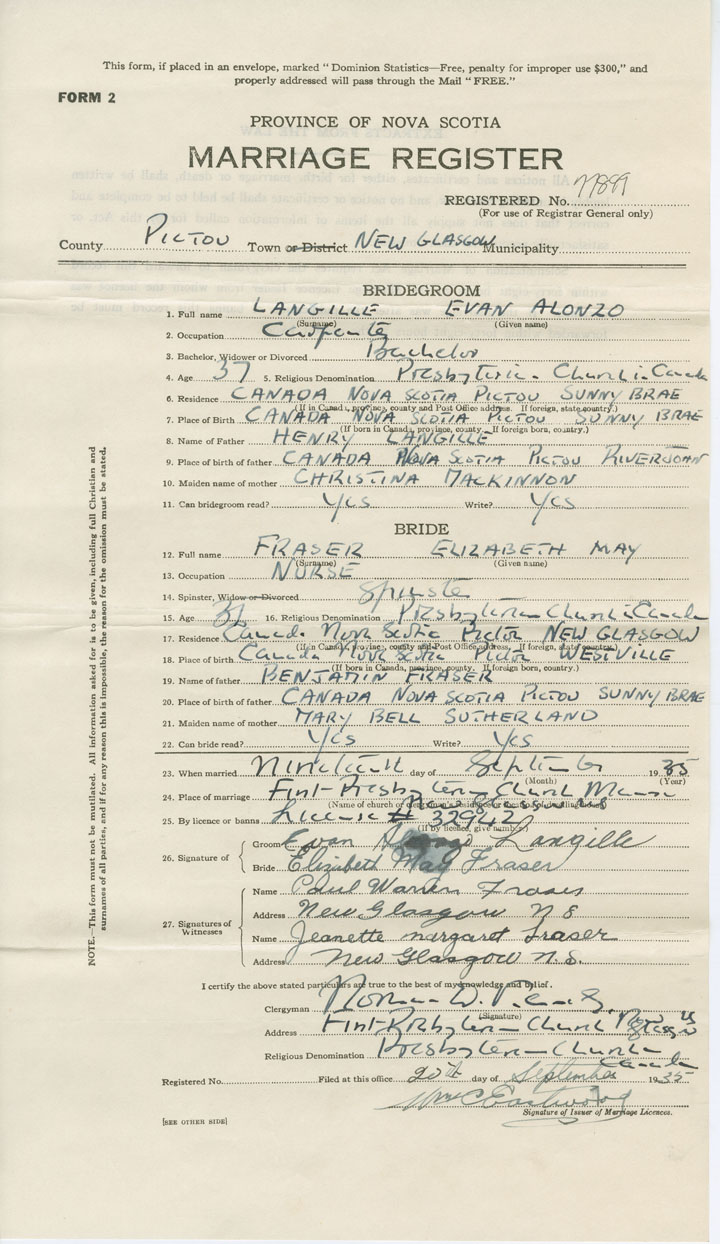 This form, if placed in an envelope, marked "Dominion Statistics—Free, penalty for improper use $300," and
properly addressed will pass through the Mail "FREE."
FORM 2
PROVINCE OF NOVA SCOTIA
MARRIAGE REGISTER
REGISTERED No.
(For use of Registrar General only)
County PICTOU Town or District NEW GLASGOW Municipality
BRIDEGROOM
1. Full name LANGILLE EVAN ALONZO
(Surname) (Given name)
2. Occupation Carpenter
3. Bachelor, Widower or Divorced Bachelor
4. Age 37 5. Religious Denomination Presbyterian Church in Canada
6. Residence CANADA NOVA SCOTIA PICTOU SUNNY BRAE
(If in Canada, province, county and Post Office address. If foreign, state country.)
7. Place of Birth CANADA NOVA SCOTIA PICTOU SUNNY BRAE
(If born in Canada, province, county. If foreign born, country.)
8. Name of Father HENRY LANGILLE
9. Place of birth of father CANADA NOVA SCOTIA PICTOU RIVER JOHN
10. Maiden name of mother CHRISTINA MACKINNON
11. Can bridegroom read? Yes Write? Yes
BRIDE
12. Full name FRASER ELIZABETH MAY
(Surname) (Given name)
13. Occupation NURSE
14. Spinster, Widow or Divorced Spinster
15. Age 16. Religious Denomination Presbyterian Church in Canada
17. Residence Canada Nova Scotia Pictou NEW GLASGOW
(If in Canada, province, county and Post Office address. If foreign, state country.)
18. Place of birth Canada Nova Scotia Pictou WESTVILLE
(If born in Canada, province, county. If foreign born, country.)
19. Name of father BENJAMIN FRASER
20. Place of birth of father CANADA NOVA SCOTIA PICTOU SUNNY BRAE
21. Maiden name of mother MARY BELL SUTHERLAND
22. Can bride read? Yes Write? Yes
23. When married Nineteenth day of September 1935
(Month) (Year)
24. Place of marriage First Presbyterian Church Manse
New Glasgow
25. By licence or banns License # 32942
(If by licence, give number)
26. Signature of
Groom Evan Alonzo Langille
Bride Elizabeth May Fraser
27. Signatures of Witnesses
Name Paul Warren Fraser
Address New Glasgow N S
Name Jeanette Margaret Fraser
Address New Glasgow N.S.
I certify the above stated particulars are true to the best of my knowledge and belief.
Clergyman Norman D.
(Signature)
Address First Presbyterian Church New Glasgow
Religious Denomination Presbyterian Church Canada
Registered No. Filed at this office 20th day of September 1935
Wm C Eastwood
Signature of Issuer of Marriage Licences.
[SEE OTHER SIDE]
NOTE.—This form must not be mutilated. All information asked for is to be given, including full Christian and
surnames of all parties, and if for any reason this is impossible, the reason for the omission must be stated.